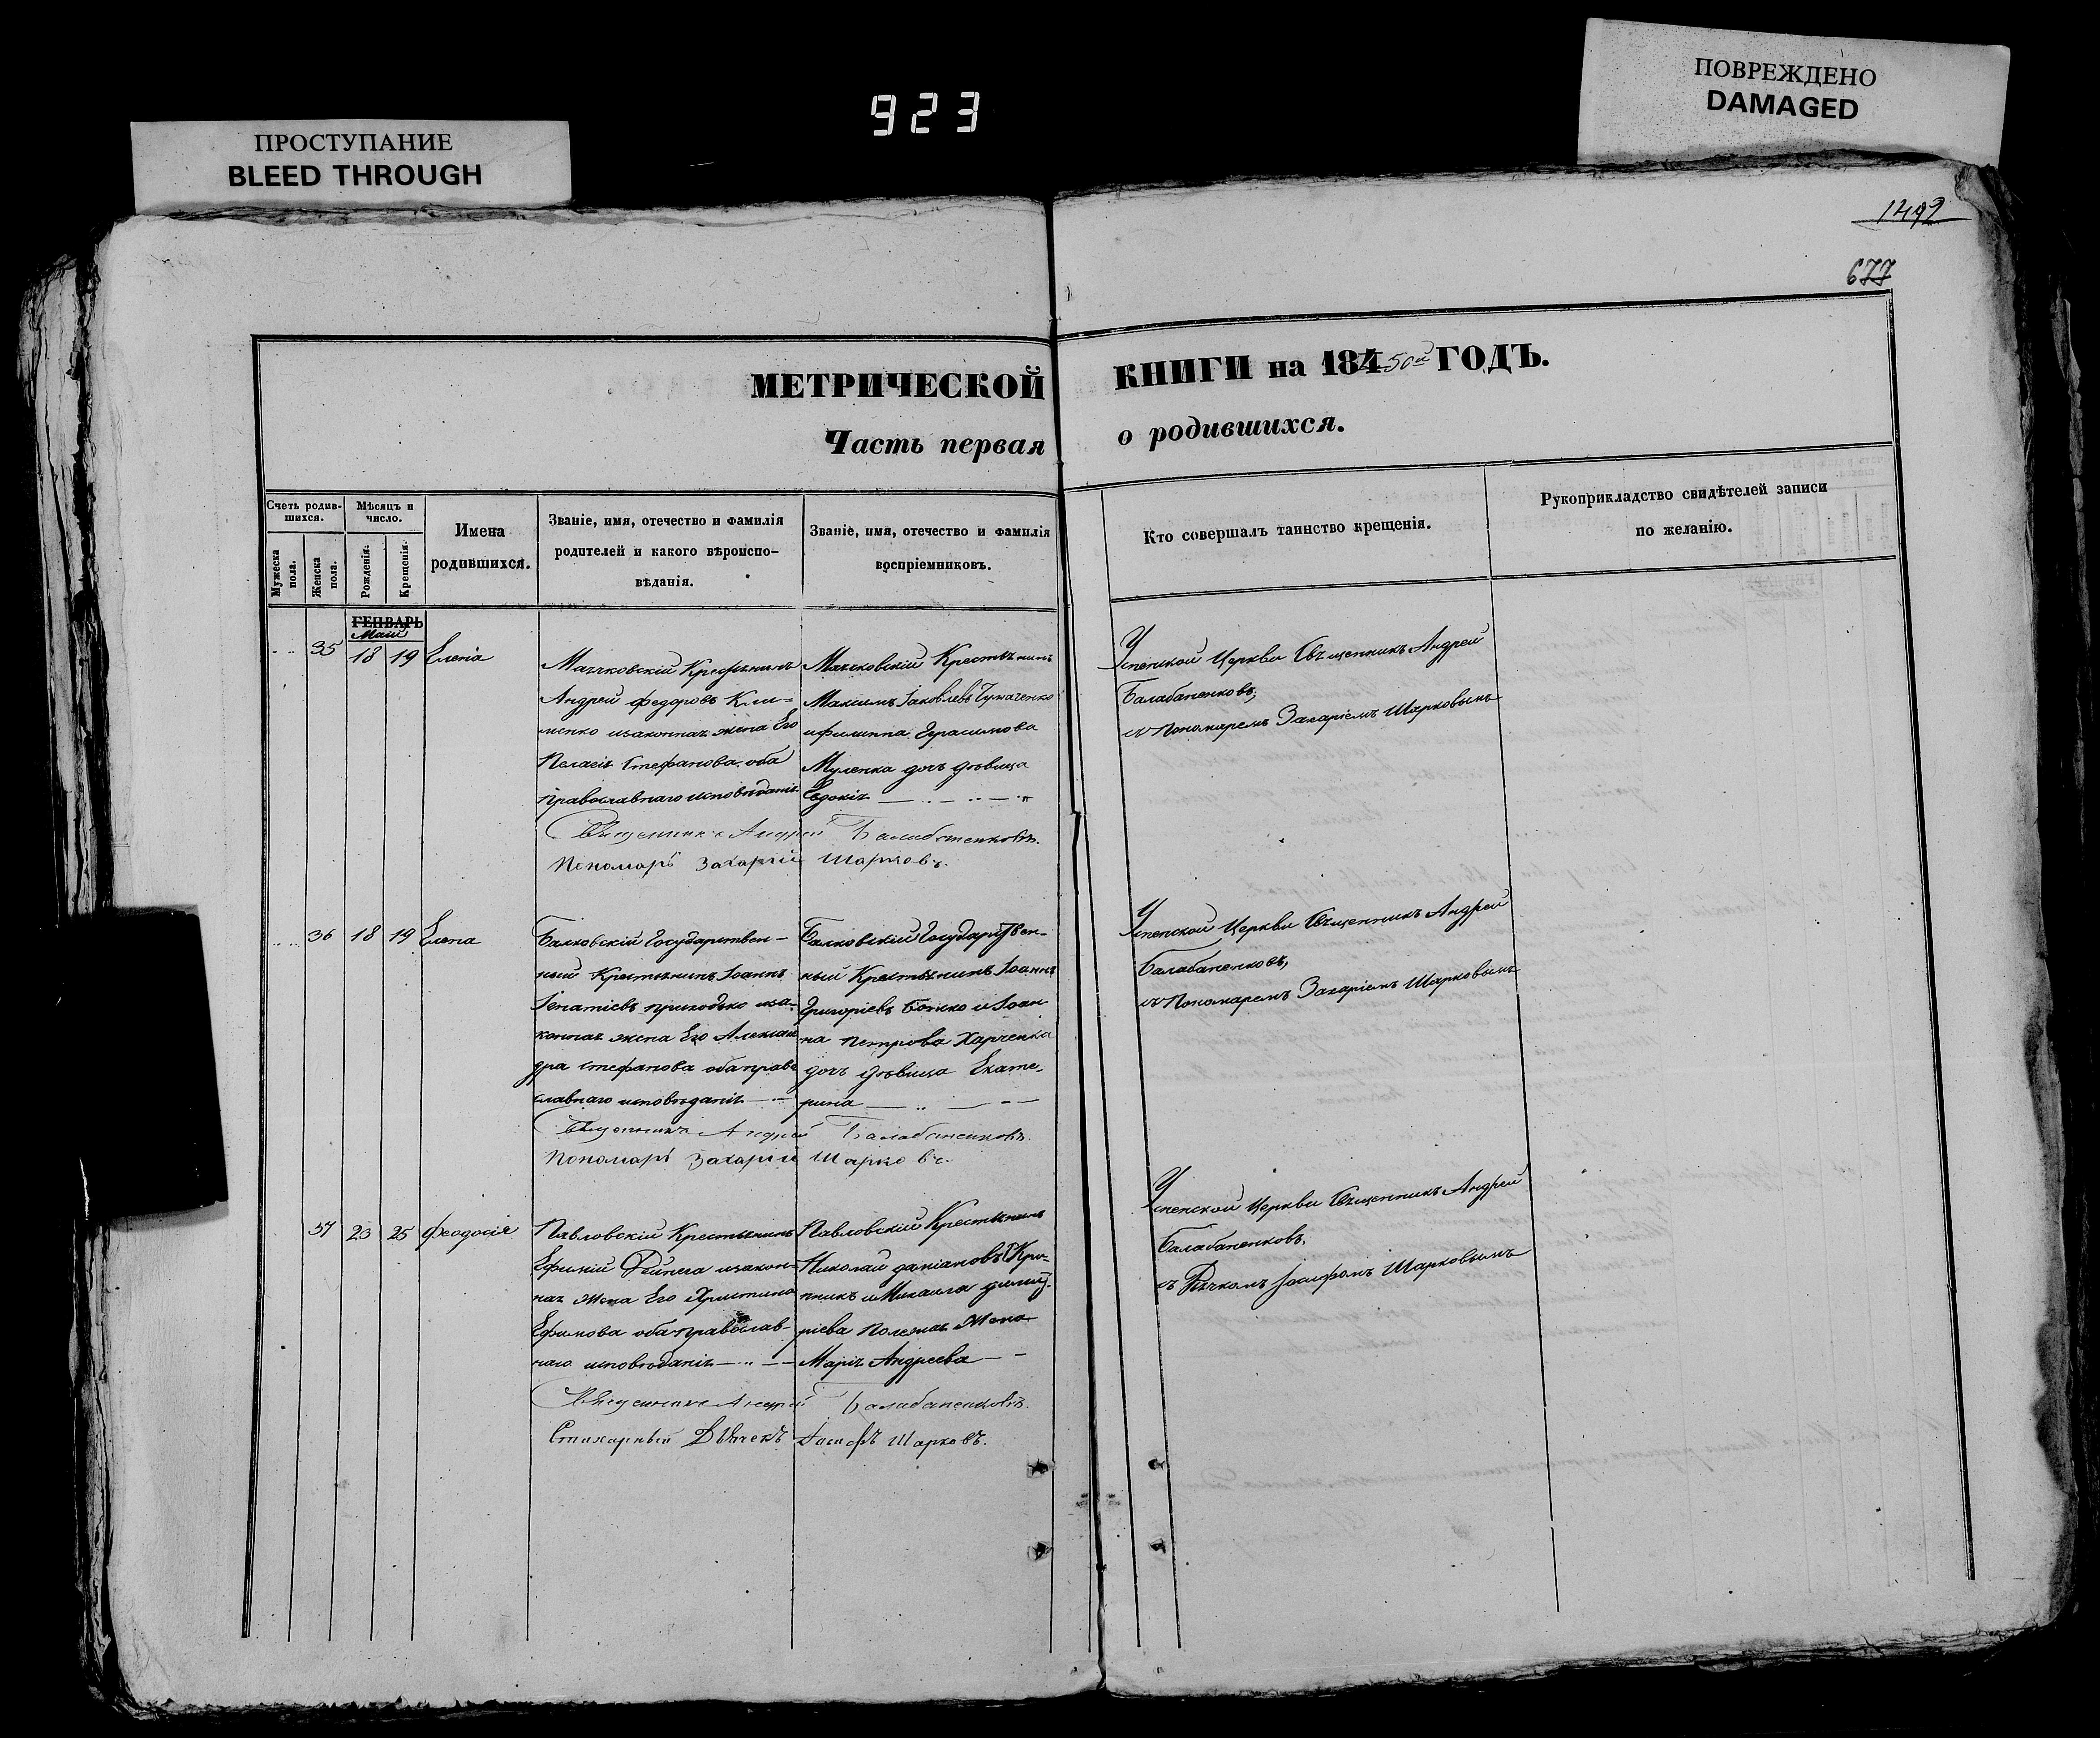 ПРОСТУПАНИЕ
BLEED THROUGH
923
ПОВРЕЖДЕНО
DAMAGED
1492
677
МЕТРИЧЕСКОЙ КНИГИ на 184 50й ГОДЪ.
Часть первая о родившихся.
Счетъ родив-
шихся.
Мужеска пола.
Женска пола.
Мѣсяцъ и
число.
Рожденія.
Крещенія.
Имена
родившихся.
Званіе, имя, отечество и фамилія
родителей и какого вѣроиспо-
вѣданія.
Званіе, имя, отечество и фамилія
воспріемниковъ.
Кто совершалъ таинство крещенія.
Рукоприкладство свидѣтелей записи
по желанію.
ГЕНВАРЬ
Маій
35 18 19 Елена
Крестьянинъ
Андрей Федоровъ Кли=
менко изаконная жена Его
Пелагія Стефанова, оба
православнаго исповѣданія
Крестьянинъ
Максимъ Іаковлевъ
ифилиппа Герасимова
Муленка дочь дѣвица
Евдокія
Успенской Церкви Священникъ Андрей
Балабаненковъ,
съ Пономаремъ Захаріемъ Шарковымъ
Священникъ Андрей Балабаненковъ.
Пономарь Захарій Шарковъ.
36 18 19 Елена
Балковскій Государствен-
ный Крестьянинъ Іоаннъ
Игнатіевъ приходько иза-
конная жена Его Алексан
дра стефанова обаправо
славнаго исповѣданія
Балковскій Государствен-
ный Крестьянинъ Іоаннъ
Григоріевъ Божко и Іоан
на Петрова Харченка
дочь дѣвица Екате-
рина
Успенской Церкви Священникъ Андрей
Балабаненковъ,
съ Пономаремъ Захаріемъ Шарковымъ
Священникъ Андрей Балабаненковъ.
Пономарь Захарій Шарковъ.
37 23 25 Феодосія
Павловскій Крестьянинъ
Ефимій Дейнега изакон-
ная жена Его Христина
Ефимова оба православ-
наго исповѣданія
Павловскій Крестьянинъ
Николай даміановъ Кри-
никъ и Михаила димит-
ріева жена
Марія Андреева
Успенской Церкви Священникъ Андрей
Балабаненковъ,
съ Дьячкомъ Іосифомъ Шарковымъ
Священникъ Андрей Балабаненковъ.
Стихарный Дьячекъ Іосифъ Шарковъ.